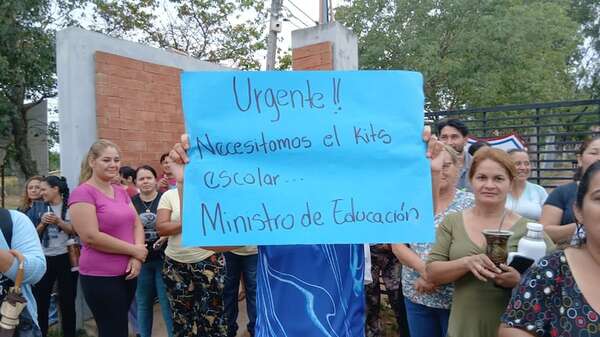 Urgente!!
Necesitamos el Kits
escolar...
Ministro de Educación